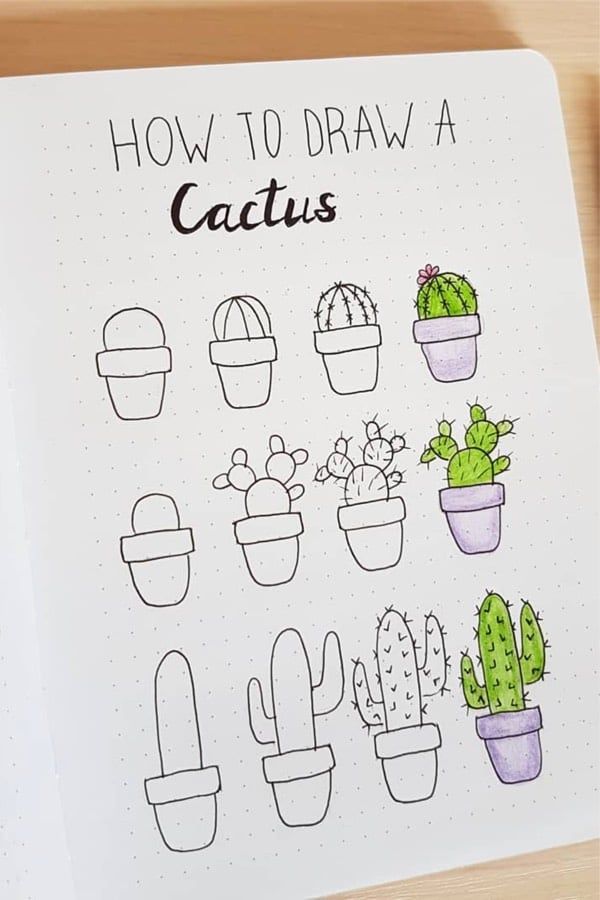 HOW TO DRAW A
Cactus